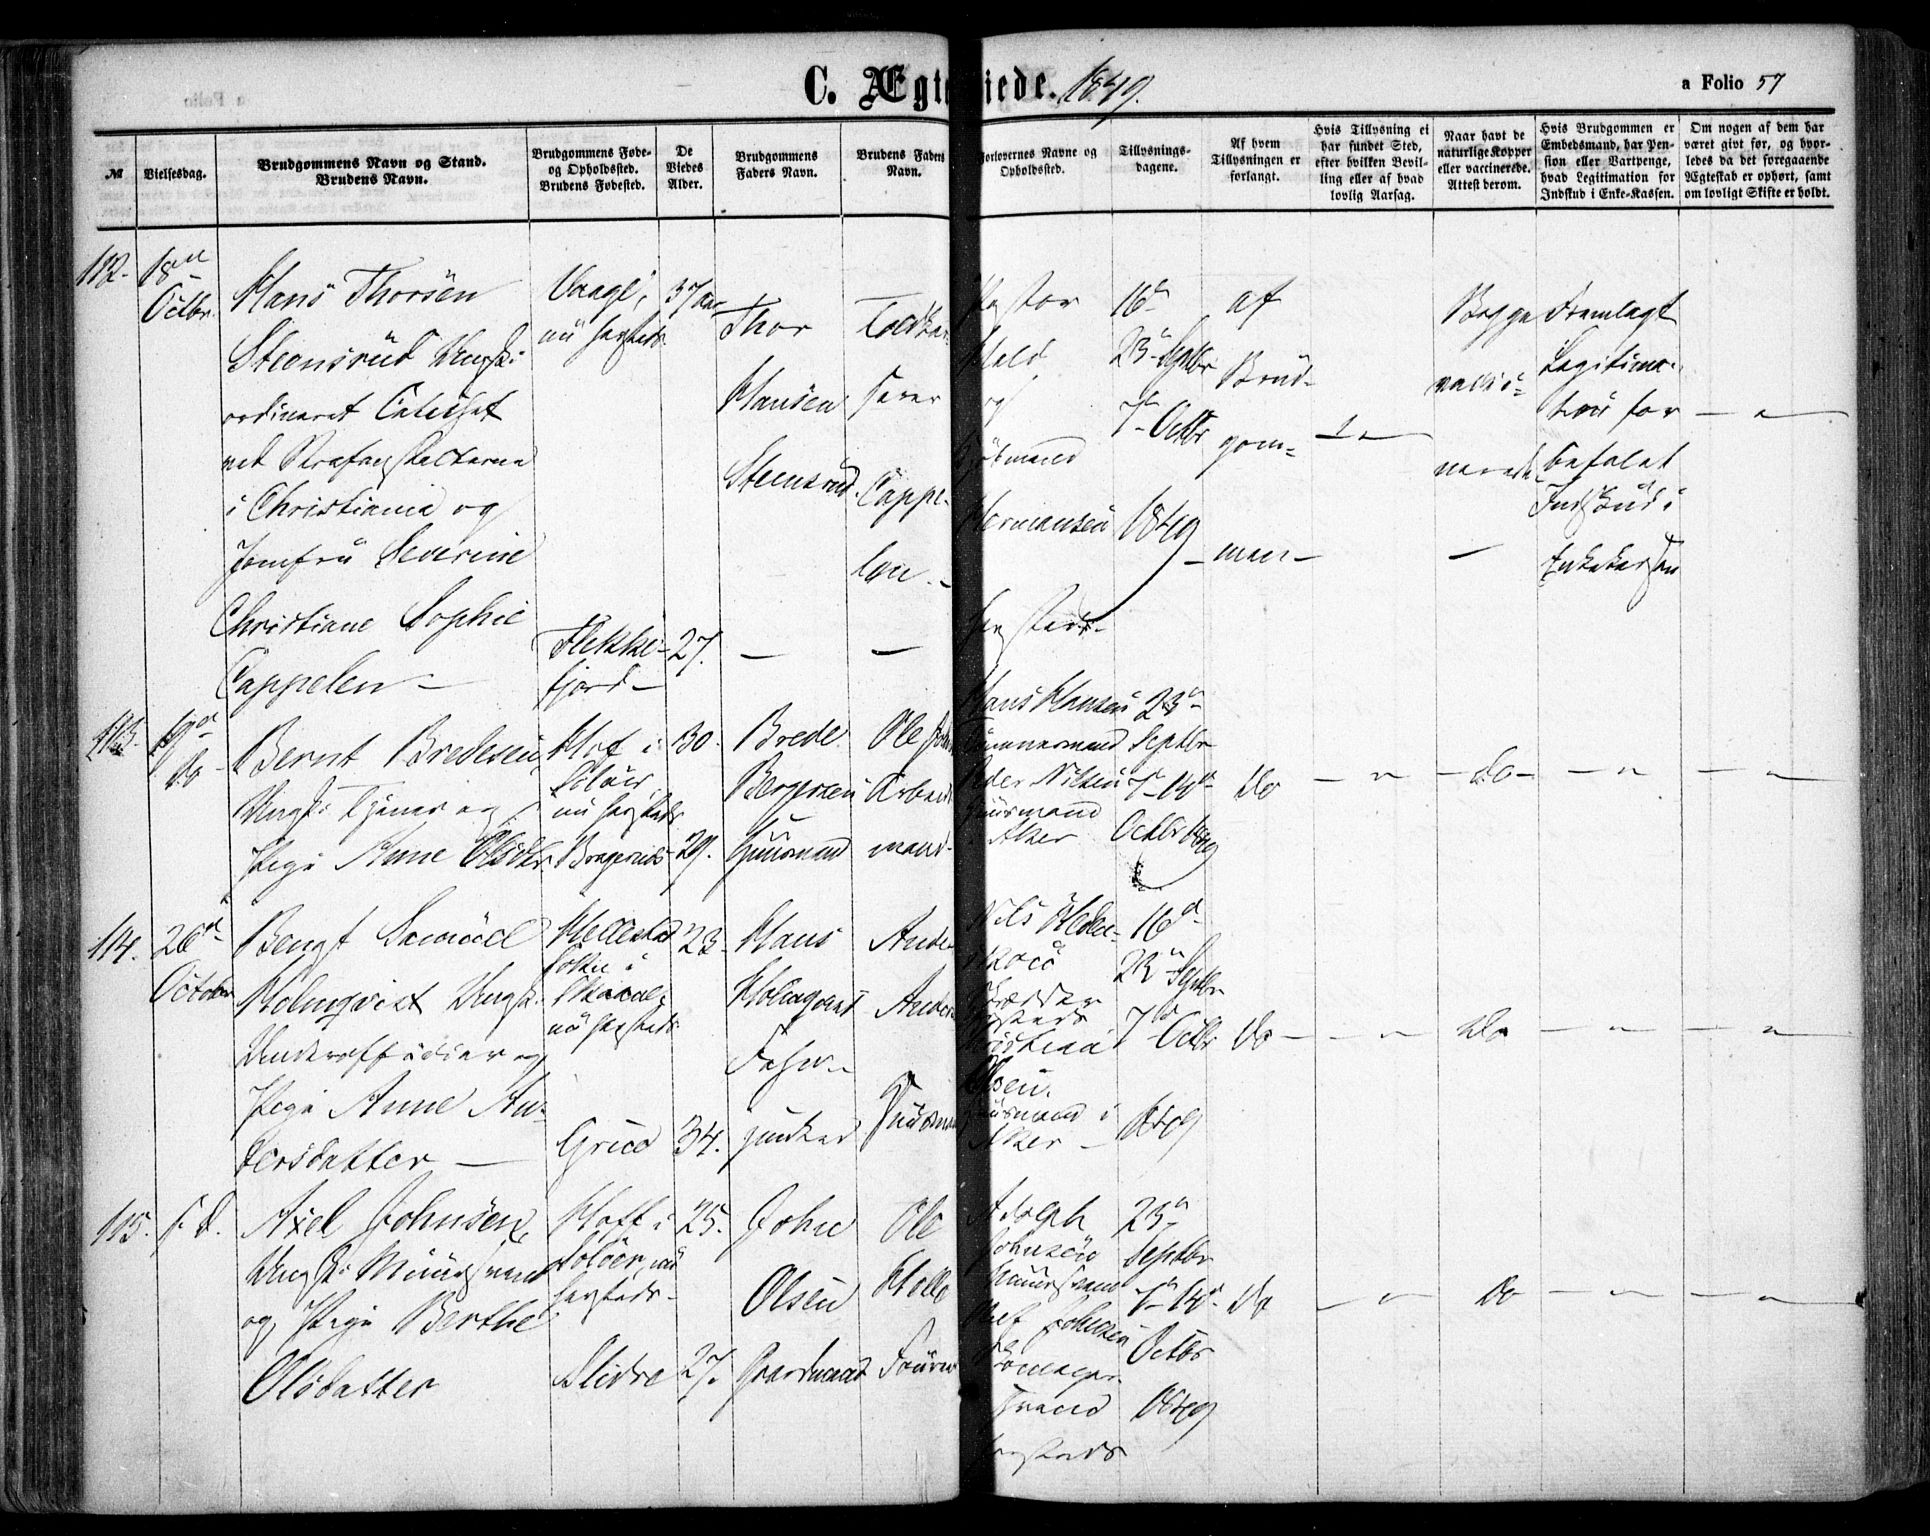 C. Ægte
iede. 1849.
a Folio 57
№
Vielsesdag.
Brudgommens Navn og Stand.
Brudens Navn.
Brudgommens Føde-
og Opholdssted.
Brudens Fødested.
De
Viedes
Alder.
Brudgommens
Faders Navn.
Brudens Faders
Navn.
Forlovernes Navne og
Opholdssted.
Tillysnings-
dagene.
Af hvem
Tillysningen er
forlangt.
Hvis Tillysning ei
har fundet Sted,
efter hvilken Bevil-
ling eller af hvad
lovlig Aarsag.
Naar havt de
naturlige Kopper
eller vaccinerede.
Attest derom.
Hvis Brudgommen er
Embedsmand, har Pen-
sion eller Vartpenge,
hvad Legitimation for
Indskud i Enke-Kassen.
Om nogen af dem har
været givt før, og hvor-
ledes da det foregaaende
Ægteskab er ophørt, samt
om lovligt Skifte er holdt.
112.
18de
Octbr.
Hans Thorsen
Steensrud Ungk:
ordineret Catechet
ved Strafanstalterne
i Christiania og
Jomfru Severine
Christiane Sophie
Cappelen
Vaage,
nu hersteds
Flekke-
fjord
37 aar
27.
Thor
Hansen
Steensrud
Cappe-
len
Pastor
og
Hermansen
hersteds
16de
23de Septbr
7de Octbr
1849
af
Brud-
gom-
men
Begge
vacci-
nerede
Fremlagt
Legitima-
tion for
befalet
Indskud i
Enkekassen
113.
19de
do
Bernt Bredesen
Ungk: Tjener og
Pige Anne Olsdtr.
Hof i
Soløer,
nu hersteds
Bragernes
30.
29.
Brede
Bergersen
Huusmand
Ole
Arbeids
mand
Hans Hansen
Tømmermand
Peder Nilsen
Huusmand
Aker
23de
Septbr
7de 14de
Octbr 1849
do
do
114.
26de
October
Bengt Samuel
Holmqvist Ungk:
Underofficier og
Pige Anne An-
dersdatter
Sogn i
Skaane,
nu hersteds
Grue
23.
34.
Hans
Holmqvist
Fahn-
junker
Ander
Ander
Huusman
Nils
Skrædder
hersteds
Christian
Olsen.
Huusmand i
Aker
16de
23de Septbr
7de Octbr
1849
do
do
115.
s. d.
Axel Johnsen,
Ungk: Muursvend
og Pige Berthe
Olsdatter
Hoff i
Soløer, nu
hersteds
Slidre
25.
27.
John
Olsen
Gaardmand
Ole
Adolph
Johnsen
Muursvend
Johnsen
Svend
hersteds
23de
Septbr
7de 14de
Octbr
1849
do
do